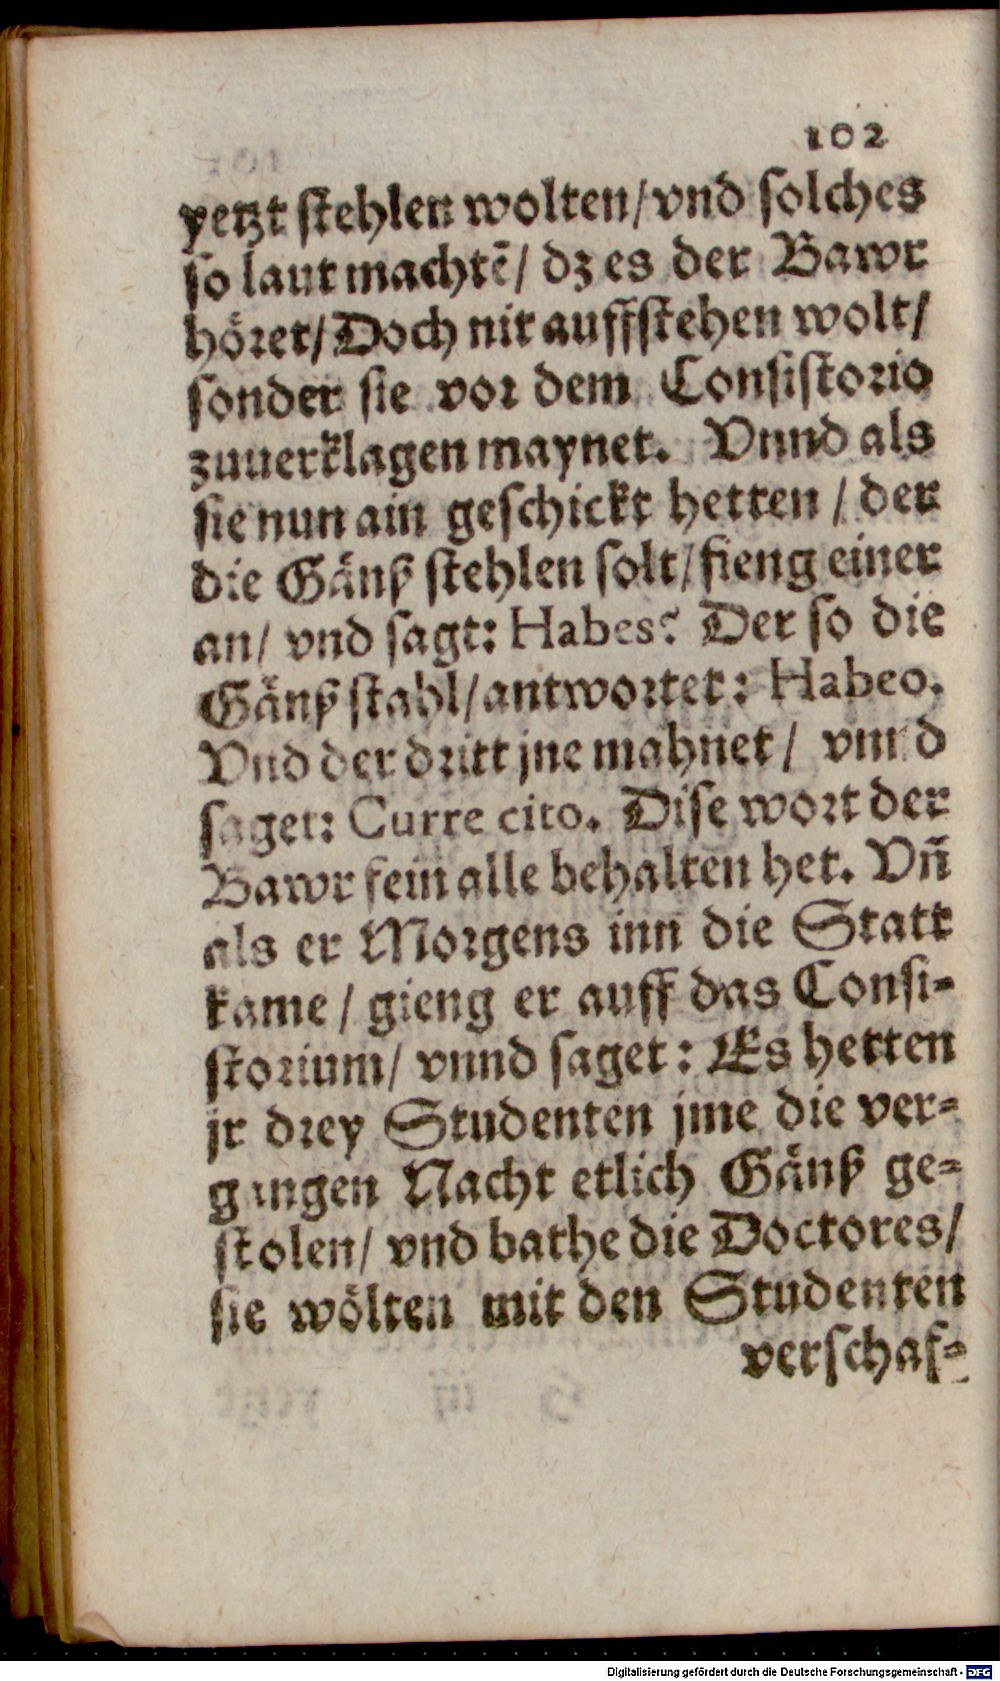 102
yetzt stehlen wolten/vnd solches
so laut machtē/ dz es der Bawr
höret/Doch nit auffstehen wolt/
sonder sie vor dem Consistorio
zuuerklagen maynet. Vnnd als
sie nun ain geschickt hetten / der
die Gänß stehlen solt/fieng einer
an/ vnd sagt: Habes? Der so die
Gänß stahl/antwortet: Habeo.
Vnd der dritt jne mahnet/ vnnd
saget: Curre cito. Dise wort der
Bawr fein alle behalten het. Vñ
als er Morgens inn die Statt
kame / gieng er auff das Consi-
storium/ vnnd saget: Es hetten
jr drey Studenten jme die ver-
gangen Nacht etlich Gänß ge-
stolen/ vnd bathe die Doctores/
sie wölten mit den Studenten
verschaf-
Digitalisierung gefördert durch die Deutsche Forschungsgemeinschaft - DFG